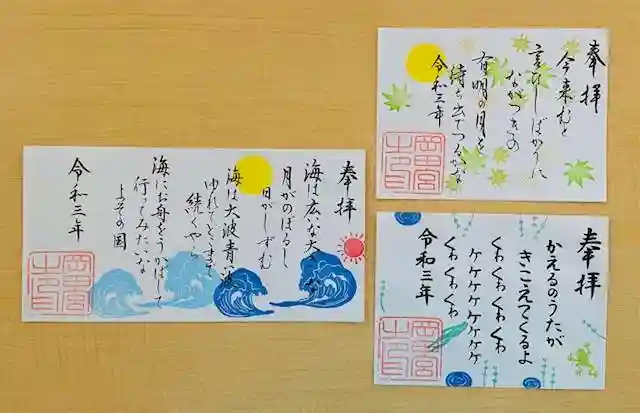 奉拝
海は広いな大きいな
月がのぼるし
日がしずむ
海は大波青い波
ゆれてどこまで
続くやら
海にお舟をうかばして
行ってみたいな
よその国
令和三年
岡田宮
奉拝
今来むと
言ひしばかりに
ながつきの
有明の月を
待ち出でつるかな
令和三年
岡田宮
奉拝
かえるのうたが
きこえてくるよ
くわくわくわくわ
ケケケケケケケケ
くわくわくわ
令和三年
岡田宮